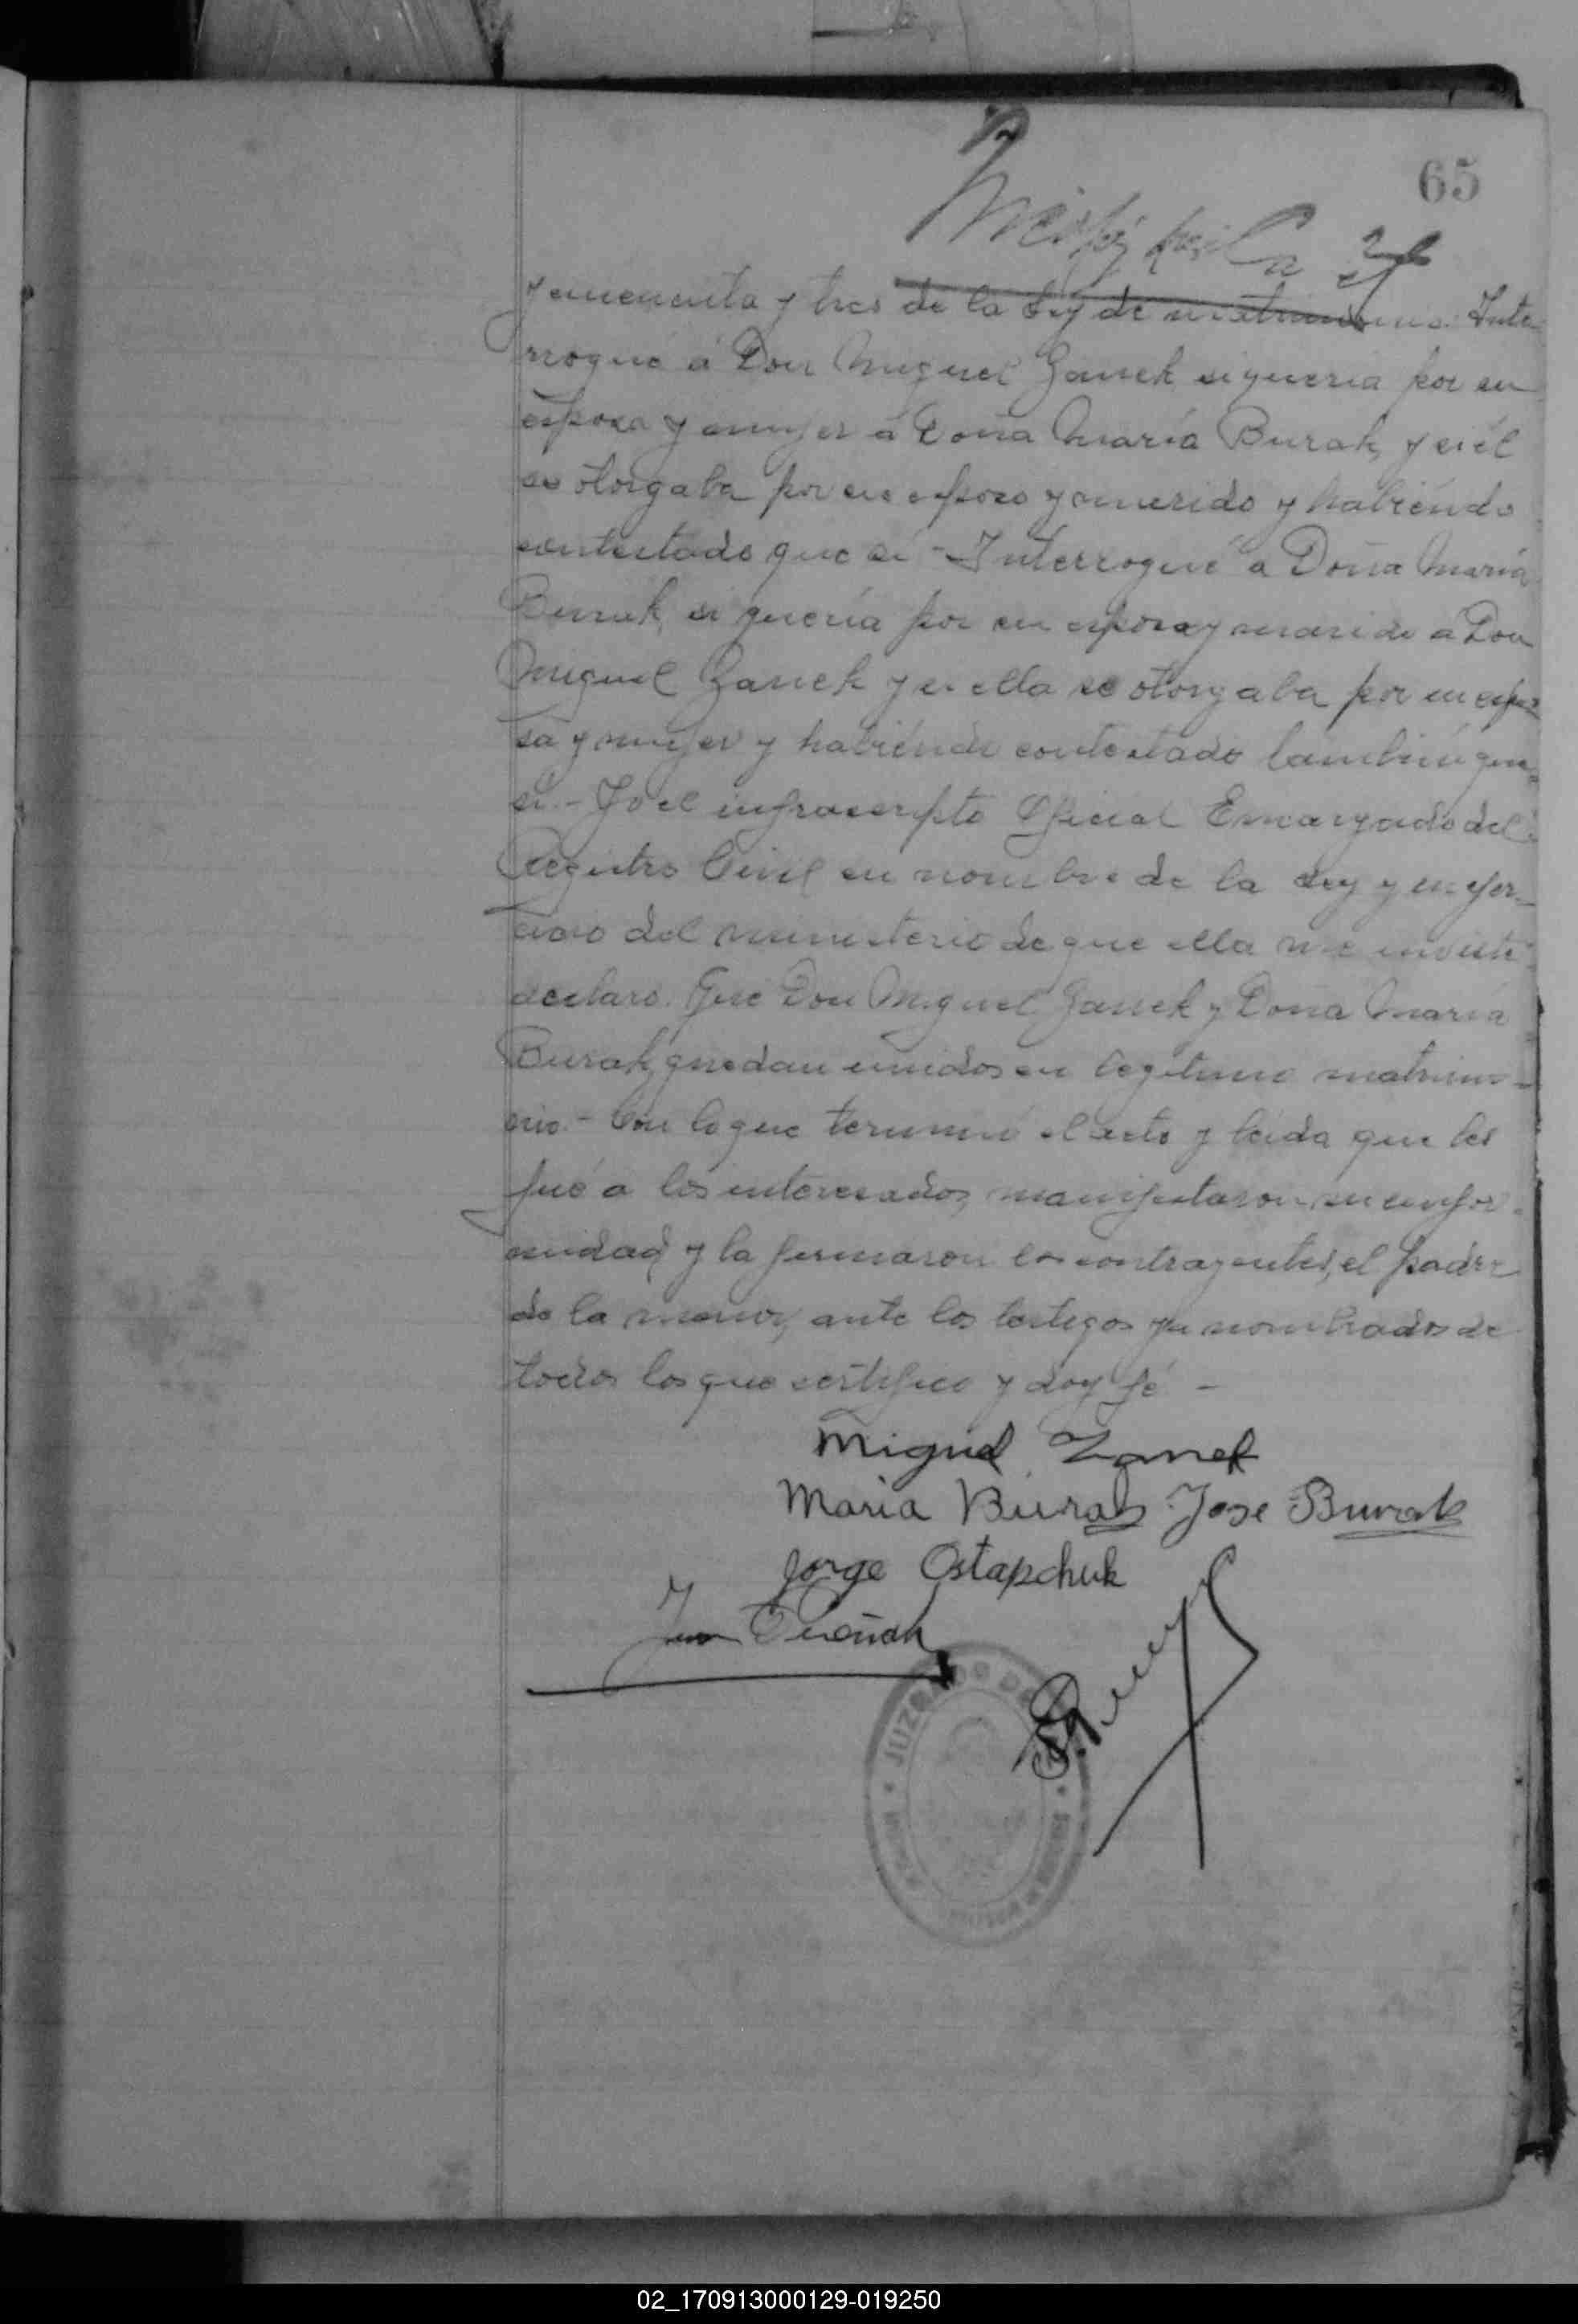 65
y cincuenta y tres de la Ley de matrimonio. Inte-
rrogué á Don Miguel Zanek si quería por su
esposa y mujer á Doña María Burak, y si él
se otorgaba por su esposo y marido y habiendo
contestado que sí - Interrogué a Doña María
Burak, si quería por su esposo y marido á Don
Miguel Zanek y si ella se otorgaba por su espo-
sa y mujer y habiendo contestado también que
sí. - Yo el infrascripto Oficial Encargado del
Registro Civil en nombre de la Ley y en ejer-
cicio del ministerio de que ella me inviste
declaro. Que Don Miguel Zanek y Doña María
Burak, quedan unidos en legítimo matrimo-
nio. - Con lo que terminó el acto y leída que les
fué a los interesados, manifestaron su confor-
midad, y la firmaron los contrayentes, el padre
de la menor, ante los testigos ya nombrados de
todos los que certifico y doy fé -
Miguel Zanek
Maria Burak Jose Burak
Jorge Ostapchuk
Juan
JUZGADO DE
02_170913000129-019250